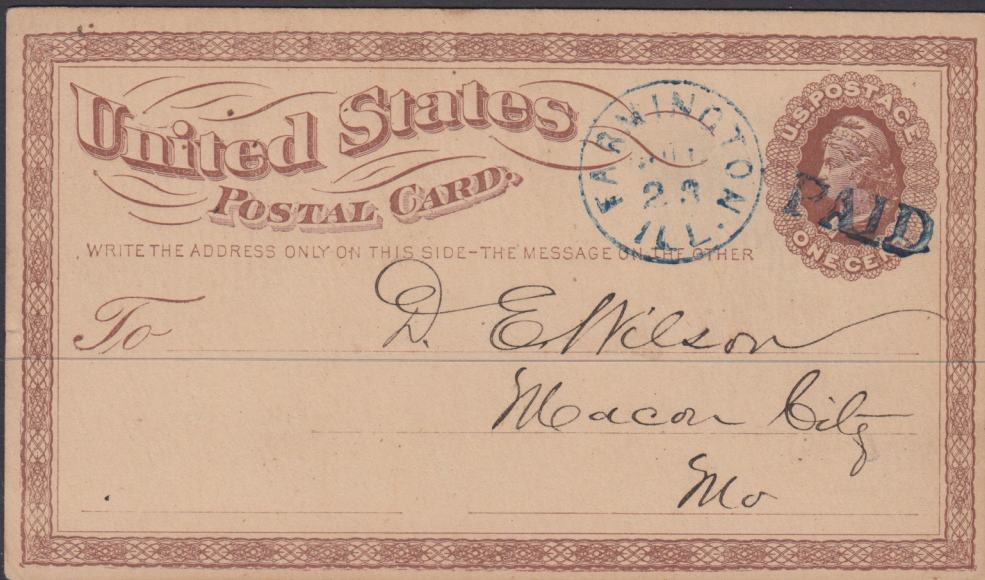 United States
Postal Card.
WRITE THE ADDRESS ONLY ON THIS SIDE-THE MESSAGE ON THE OTHER
FARMINGTON
23
ILL.
U.S. POSTAGE
ONE CENT
PAID
To D. E. Wilson
Macon City
Mo